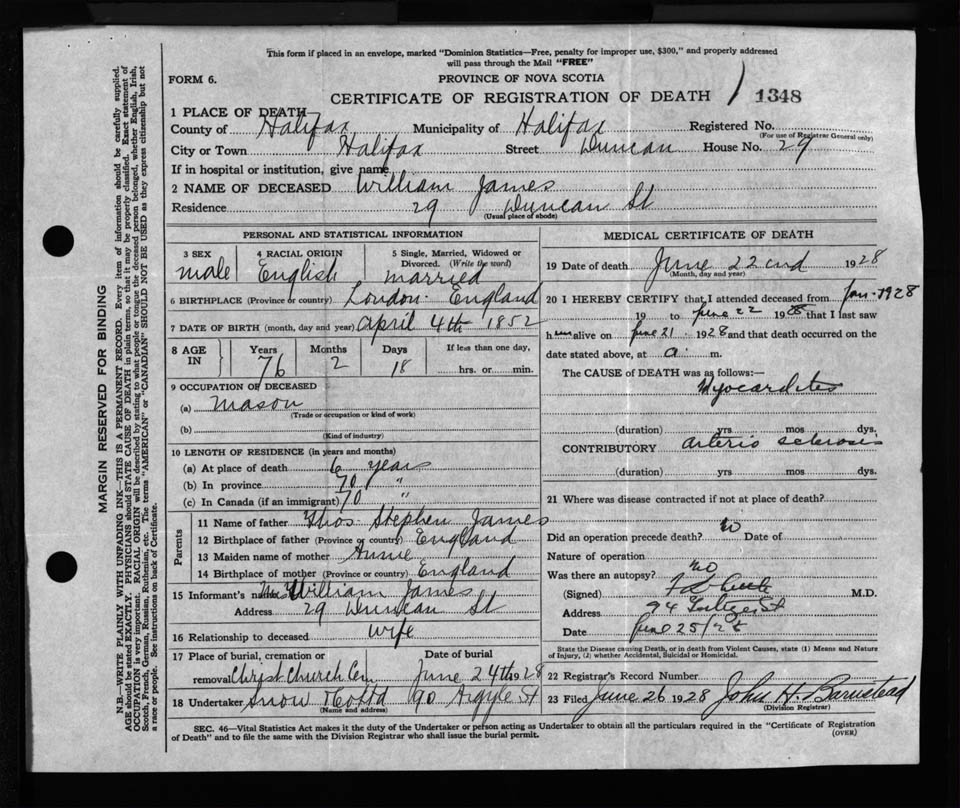 This form if placed in an envelope, marked "Dominion Statistics—Free, penalty for improper use, $300," and properly addressed
will pass through the Mail "FREE"
FORM 6.
PROVINCE OF NOVA SCOTIA
CERTIFICATE OF REGISTRATION OF DEATH 1348
1 PLACE OF DEATH
County of Halifax Municipality of Halifax Registered No.
(For use of Registrar General only)
City or Town Halifax Street Duncan House No. 29
If in hospital or institution, give name
2 NAME OF DECEASED William James
Residence 29 Duncan St
(Usual place of abode)
PERSONAL AND STATISTICAL INFORMATION
3 SEX male
4 RACIAL ORIGIN English
5 Single, Married, Widowed or Divorced. (Write the word) married
6 BIRTHPLACE (Province or country) London England
7 DATE OF BIRTH (month, day and year) April 4th 1852
8 AGE IN Years 76 Months 2 Days 18 If less than one day, hrs. or min.
9 OCCUPATION OF DECEASED
(a) Mason
(Trade or occupation or kind of work)
(b)
(Kind of industry)
10 LENGTH OF RESIDENCE (in years and months)
(a) At place of death 6 years
(b) In province 70 "
(c) In Canada (if an immigrant) 70 "
Parents
11 Name of father Thos Stephen James
12 Birthplace of father (Province or country) England
13 Maiden name of mother Annie
14 Birthplace of mother (Province or country) England
15 Informant's name Mrs William James
Address 29 Duncan St
16 Relationship to deceased wife
17 Place of burial, cremation or removal Christ Church Cem
Date of burial June 24th 1928
18 Undertaker Snow & Co Ltd 90 Argyle St
(Name and address)
MEDICAL CERTIFICATE OF DEATH
19 Date of death June 22nd 1928
(Month, day and year)
20 I HEREBY CERTIFY that I attended deceased from Jan. 1928
19 to June 22 1928 that I last saw
him alive on June 21. 1928 and that death occurred on
date stated above, at a m.
The CAUSE of DEATH was as follows:—
Myocarditis
(duration) yrs mos dys.
CONTRIBUTORY arterio sclerosis
(duration) yrs mos dys.
21 Where was disease contracted if not at place of death?
Did an operation precede death? No Date of
Nature of operation
Was there an autopsy? no
(Signed) M.D.
Address 94 St
Date June 25/28
State the Disease causing Death, or in death from Violent Causes, state (1) Means and Nature
of Injury, (2) whether Accidental, Suicidal or Homicidal.
22 Registrar's Record Number
23 Filed June 26 1928 John H. Barnstead
(Division Registrar)
SEC. 46—Vital Statistics Act makes it the duty of the Undertaker or person acting as Undertaker to obtain all the particulars required in the "Certificate of Registration
of Death" and to file the same with the Division Registrar who shall issue the burial permit.
(OVER)
MARGIN RESERVED FOR BINDING
N.B.—WRITE PLAINLY WITH UNFADING INK—THIS IS A PERMANENT RECORD. Every item of information should be carefully supplied.
AGE should be stated EXACTLY. PHYSICIANS should STATE CAUSE OF DEATH in plain terms, so that it may be properly classified. Exact statement of
OCCUPATION is very important. RACIAL ORIGIN will be described by stating to what people or tongue the deceased person belonged, whether English, Irish,
Scotch, French, German, Russian, Ruthenian, etc. The terms "AMERICAN" or "CANADIAN" SHOULD NOT BE USED as they express citizenship but not
a race or people. See instructions on back of Certificate.